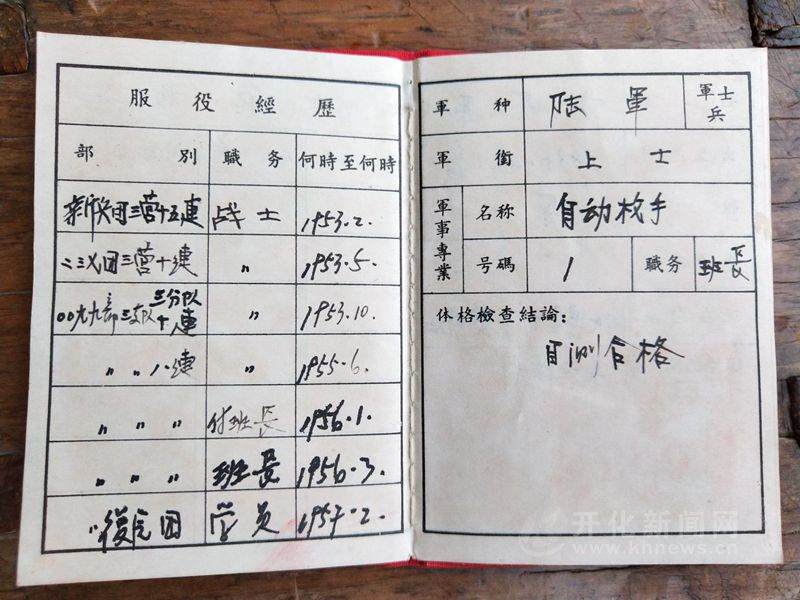 服役經歷
部別 職务 何時至何時
新兵团三营十五連 战士 1953.2.
二三乂团三营十連 〃 1953.5.
〇〇九九部三支队三分队十連 〃 1953.10.
〃 〃 八連 〃 1955.6.
〃 〃 〃 付班長 1956.1.
〃 〃 〃 班長 1956.3.
团 学员 1957.2.
軍种 陆軍 軍士兵
軍銜 上士
軍事專業 名称 自动枪手
号碼 1 職务 班長
体格檢查結論:
目测合格
开化新闻网
www.khnews.cn